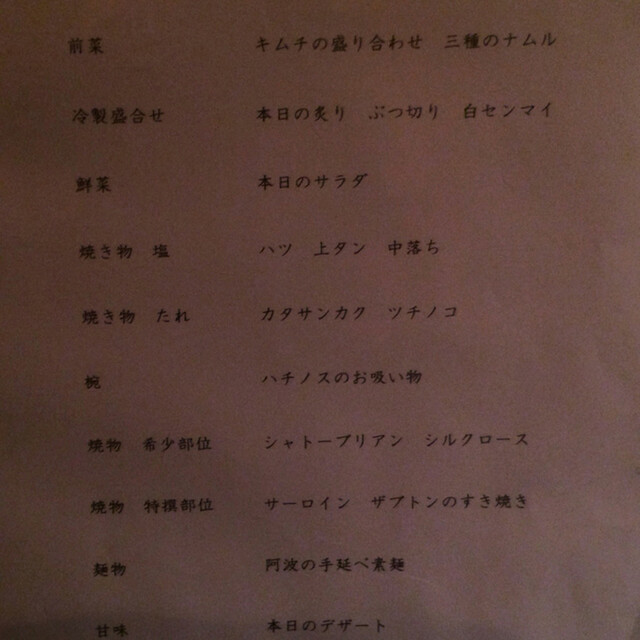 前菜　キムチの盛り合わせ　三種のナムル
冷製盛合せ　本日の炙り　ぶつ切り　白センマイ
鮮菜　本日のサラダ
焼き物　塩　ハツ　上タン　中落ち
焼き物　たれ　カタサンカク　ツチノコ
椀　ハチノスのお吸い物
焼物　希少部位　シャトーブリアン　シルクロース
焼物　特撰部位　サーロイン　ザブトンのすき焼き
麺物　阿波の手延べ素麺
甘味　本日のデザート